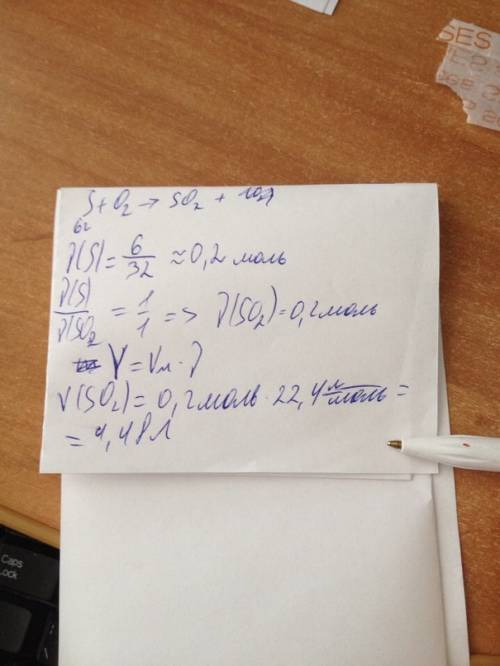 S + O₂ → SO₂ +
6г
ν(S) = 6/32 ≈ 0,2 моль
ν(S)/ν(SO₂ = 1/1 => ν(SO₂) = 0,2 моль
V = Vм · ν
V(SO₂) = 0,2 моль · 22,4 л/моль =
= 4,48 л
SES
Caps
Lock